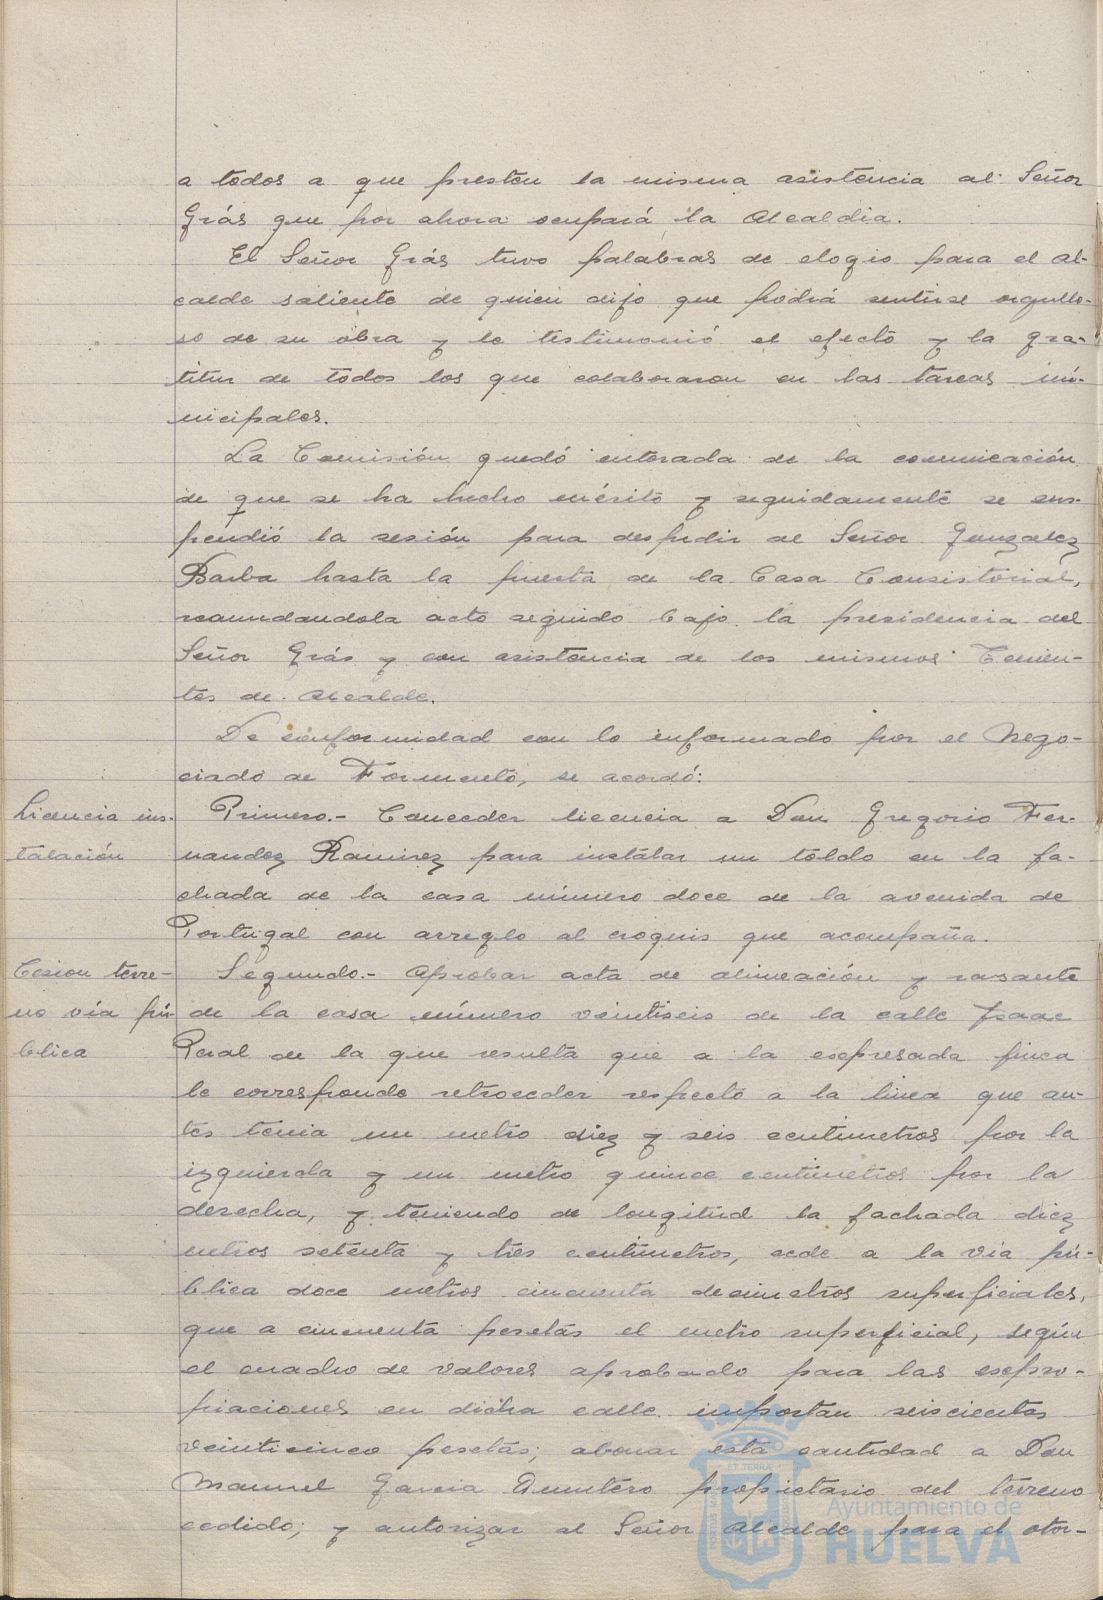 a todos a que presten la misma asistencia al Señor
Grás que por ahora ocupará la Alcaldia.
El Señor Grás tuvo palabras de elogio para el Al-
calde saliente de quien dijo que podrá sentirse orgullo-
so de su obra y le testimonió el efecto y la gra-
titur de todos los que colaboraron en las tareas mu-
nicipales.
La Comisión quedó enterada de la comunicación
de que se ha hecho mérito y seguidamente se sus-
pendió la sesión para despedir al Señor Gonzalez
Barba hasta la puerta de la Casa Consistorial,
reanundandola acto seguido bajo la presidencia del
Señor Grás y con asistencia de los mismos Tenien-
tes de Alcalde.
De conformidad con lo informado por el Nego-
ciado de Formento, se acordó:
Licencia ins-
talación
Primero.- Conceder licencia a Don Gregorio Fer-
nandez Ramirez para instalar un toldo en la fa-
chada de la casa número doce de la avenida de
Portugal con arreglo al croquis que acompaña.
Cesion terre-
no via pú-
blica
Segundo.- Aprobar acta de alineación y rasante
de la casa número veintiseis de la calle Isaac
Peral de la que resulta que a la expresada finca
le corresponde retroceder respecto a la linea que an-
tes tenia un metro diez y seis centimetros por la
izquierda y un metro quince centimetros por la
derecha, y teniendo de longitud la fachada diez
metros setenta y tres centimetros, cede a la via pú-
blica doce metros cincuenta decimetros superficiales,
que a cincuenta pesetas el metro superficial, según
el cuadro de valores aprobado para las expro-
piaciones en dicha calle importan seiscientas
veinticinco pesetas; abonar esta cantidad a Don
Manuel Garcia propietario del terreno
cedido; y autorizar al Señor Alcalde para el otor-
Ayuntamiento de
HUELVA